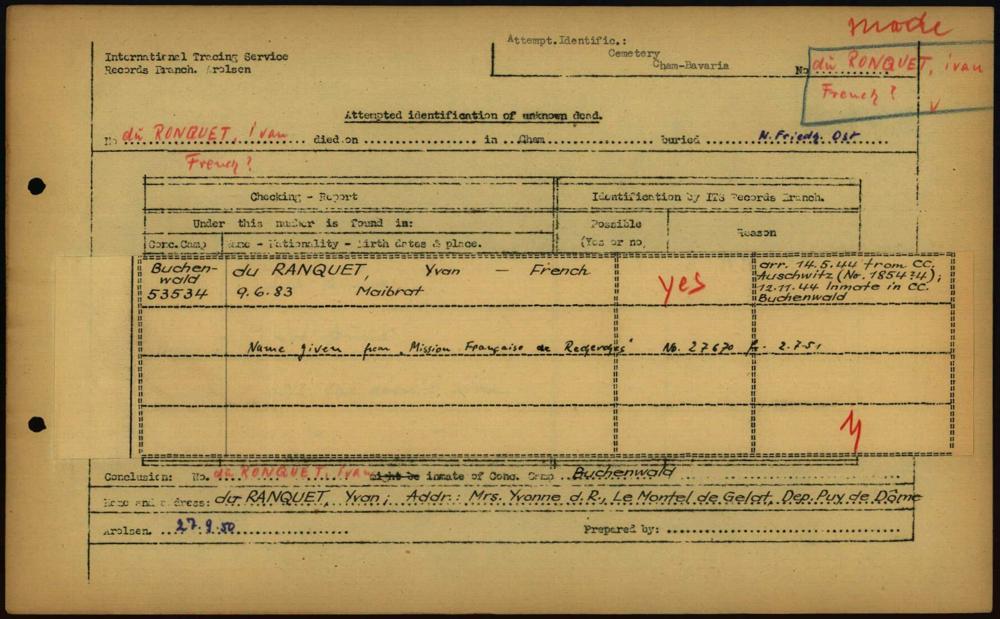 made
International Tracing Service
Records Branch. Arolsen
Attempt.Identific.:
Cemetery
Cham-Bavaria
No dù RONQUET, ivan
French?
v
Attempted identification of unknown dead.
No dù RONQUET, ivan died on in Cham buried N. Friedg. Ost
French?
Checking - Report
Identification by ITS Records Branch.
Under this number is found in:
Possible
(Yes or no,
Reason
Conc.Camp
Name - Nationality - Birth dates & place.
Buchen-
wald
53534
du RANQUET, Yvan - French
9.6.83 Maibrat
yes
arr. 14.5.44 from CC.
Auschwitz (No. 1854?4);
12.11.44 Inmate in CC.
Buchenwald
Name given from "Mission Française de No. 27670 2.7.51
Conclusion: No. dù RONQUET, ivan might be inmate of Conc. Camp Buchenwald
Name and address: du RANQUET, Yvan; Addr.: Mrs. Yvonne d. R., Le Montel de Gelat, Dep. Puy de Dôme
Arolsen. 27.9.50 Prepared by: